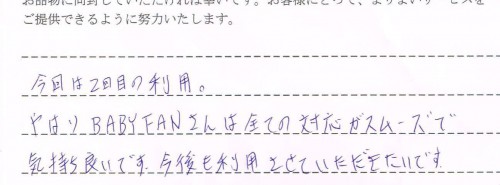 お品物に同封していただければ幸いです。お客様にとって、よりよいサービスを
ご提供できるように努力いたします。
今回は2回目の利用。
やはりBABY FANさんは全ての対応がスムーズで
気持ち良いです。今後も利用させていただきたいです